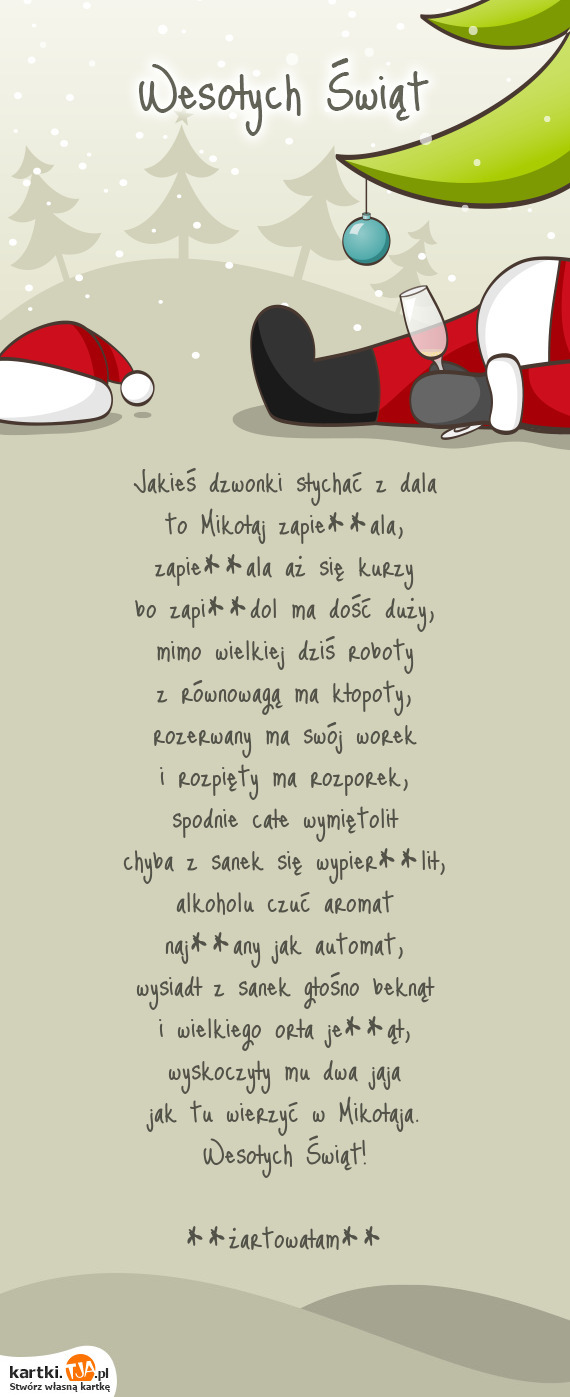 Wesołych Świąt
Jakieś dzwonki słychać z dala
to Mikołaj zapie**ala,
zapie**ala aż się kurzy
bo zapi**dol ma dość duży,
mimo wielkiej dziś roboty
z równowagą ma kłopoty,
rozerwany ma swój worek
i rozpięty ma rozporek,
spodnie całe wymiętolił
chyba z sanek się wypier**lił,
alkoholu czuć aromat
naj**any jak automat,
wysiadł z sanek głośno beknął
i wielkiego orła je**ął,
wyskoczyły mu dwa jaja
jak tu wierzyć w Mikołaja.
Wesołych Świąt!
**żartowałam**
kartki.TJA.pl
Stwórz własną kartkę